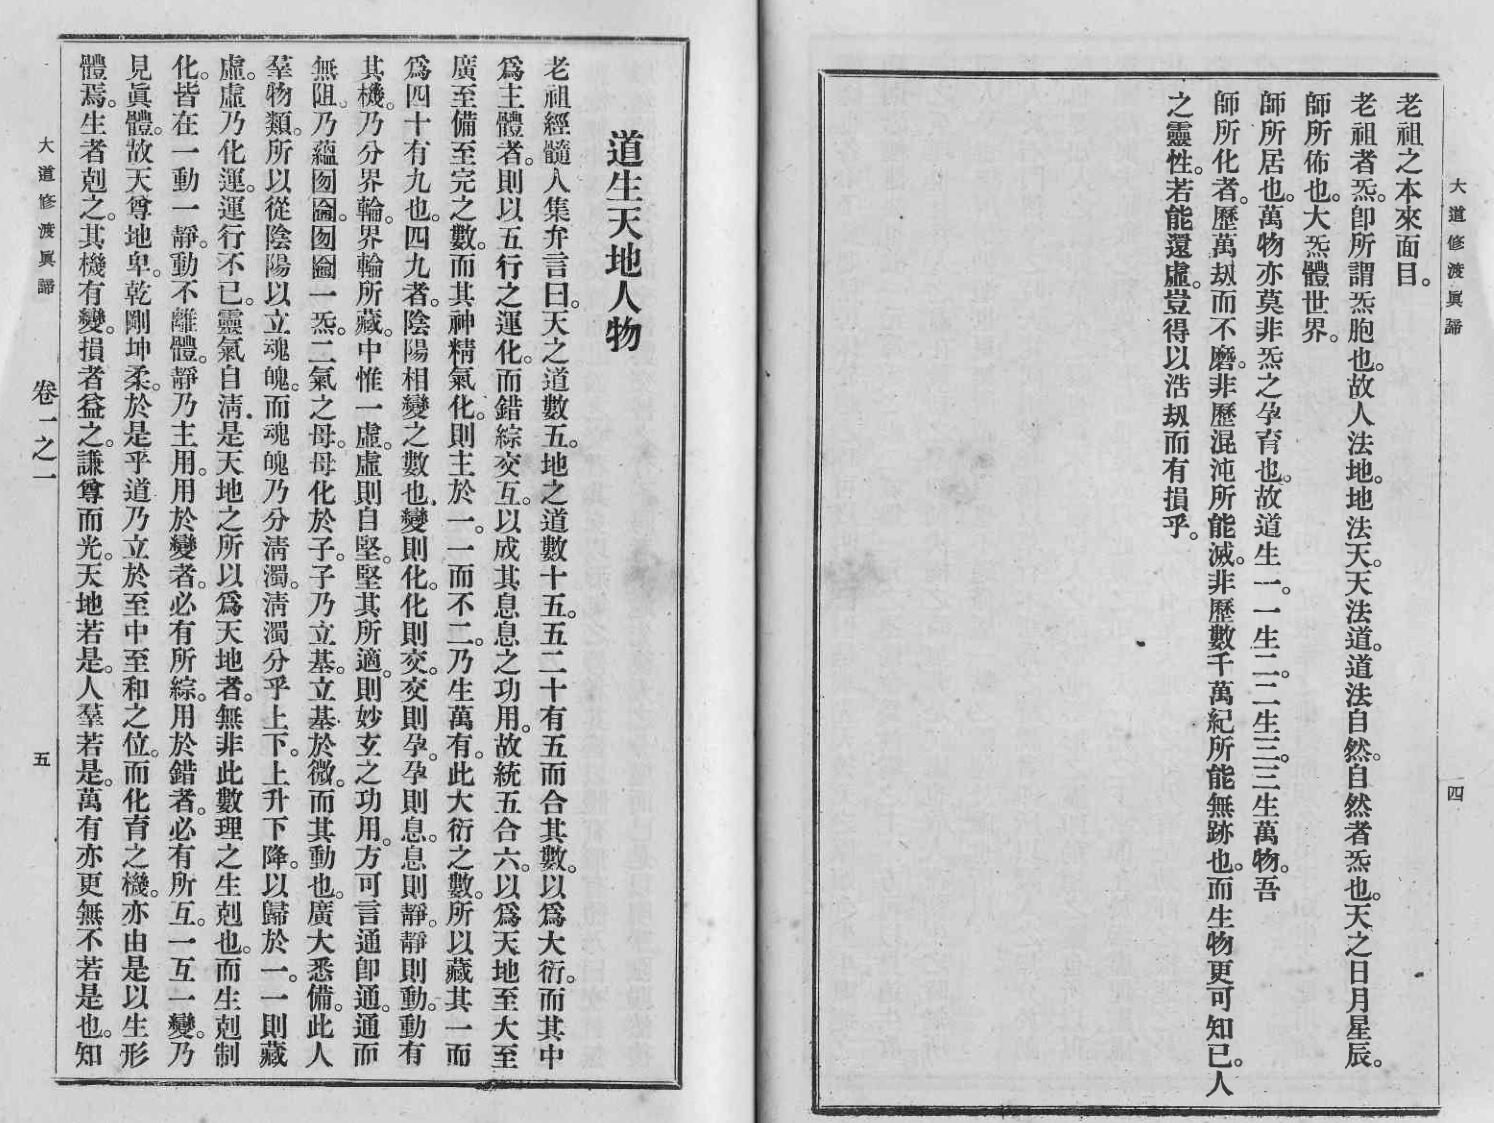 大道修渡眞諦
四
老祖之本來面目。
老祖者炁。卽所謂炁胞也。故人法地。地法天。天法道。道法自然。自然者炁也。天之日月星辰。
師所佈也。大炁體世界。
師所居也。萬物亦莫非炁之孕育也。故道生一。一生二。二生三。三生萬物。吾
師所化者。歷萬刼而不磨。非歷混沌所能滅。非歷數千萬紀所能無跡也。而生物更可知已。人
之靈性。若能還虛。豈得以浩刼而有損乎。
道生天地人物
老祖經髓入集弁言曰。天之道數五。地之道數十五。五二十有五而合其數。以爲大衍。而其中
爲主體者。則以五行之運化。而錯綜交互。以成其息息之功用。故統五合六。以爲天地至大至
廣至備至完之數。而其神精氣化。則主於一。一而不二。乃生萬有。此大衍之數。所以藏其一而
爲四十有九也。四九者。陰陽相變之數也。變則化。化則交。交則孕。孕則息。息則靜。靜則動。動有
其機。乃分界輪。界輪所藏。中惟一虛。虛則自堅。堅其所適。則妙玄之功用。方可言通卽通。通而
無阻。乃蘊囫圇。囫圇一炁。二氣之母。母化於子。子乃立基。立基於微。而其動也。廣大悉備。此人
羣物類。所以從陰陽以立魂魄。而魂魄乃分清濁。清濁分乎上下。上升下降。以歸於一。一則藏
虛。虛乃化運。運行不已。靈氣自清。是天地之所以爲天地者。無非此數理之生剋也。而生剋制
化。皆在一動一靜。動不離體。靜乃主用。用於變者。必有所綜。用於錯者。必有所互。一互一變。乃
見眞體。故天尊地卑。乾剛坤柔。於是乎道乃立於至中至和之位。而化育之機。亦由是以生形
體焉。生者剋之。其機有變。損者益之。謙尊而光。天地若是。人羣若是。萬有亦更無不若是也。知
大道修渡眞諦
卷一之一
五